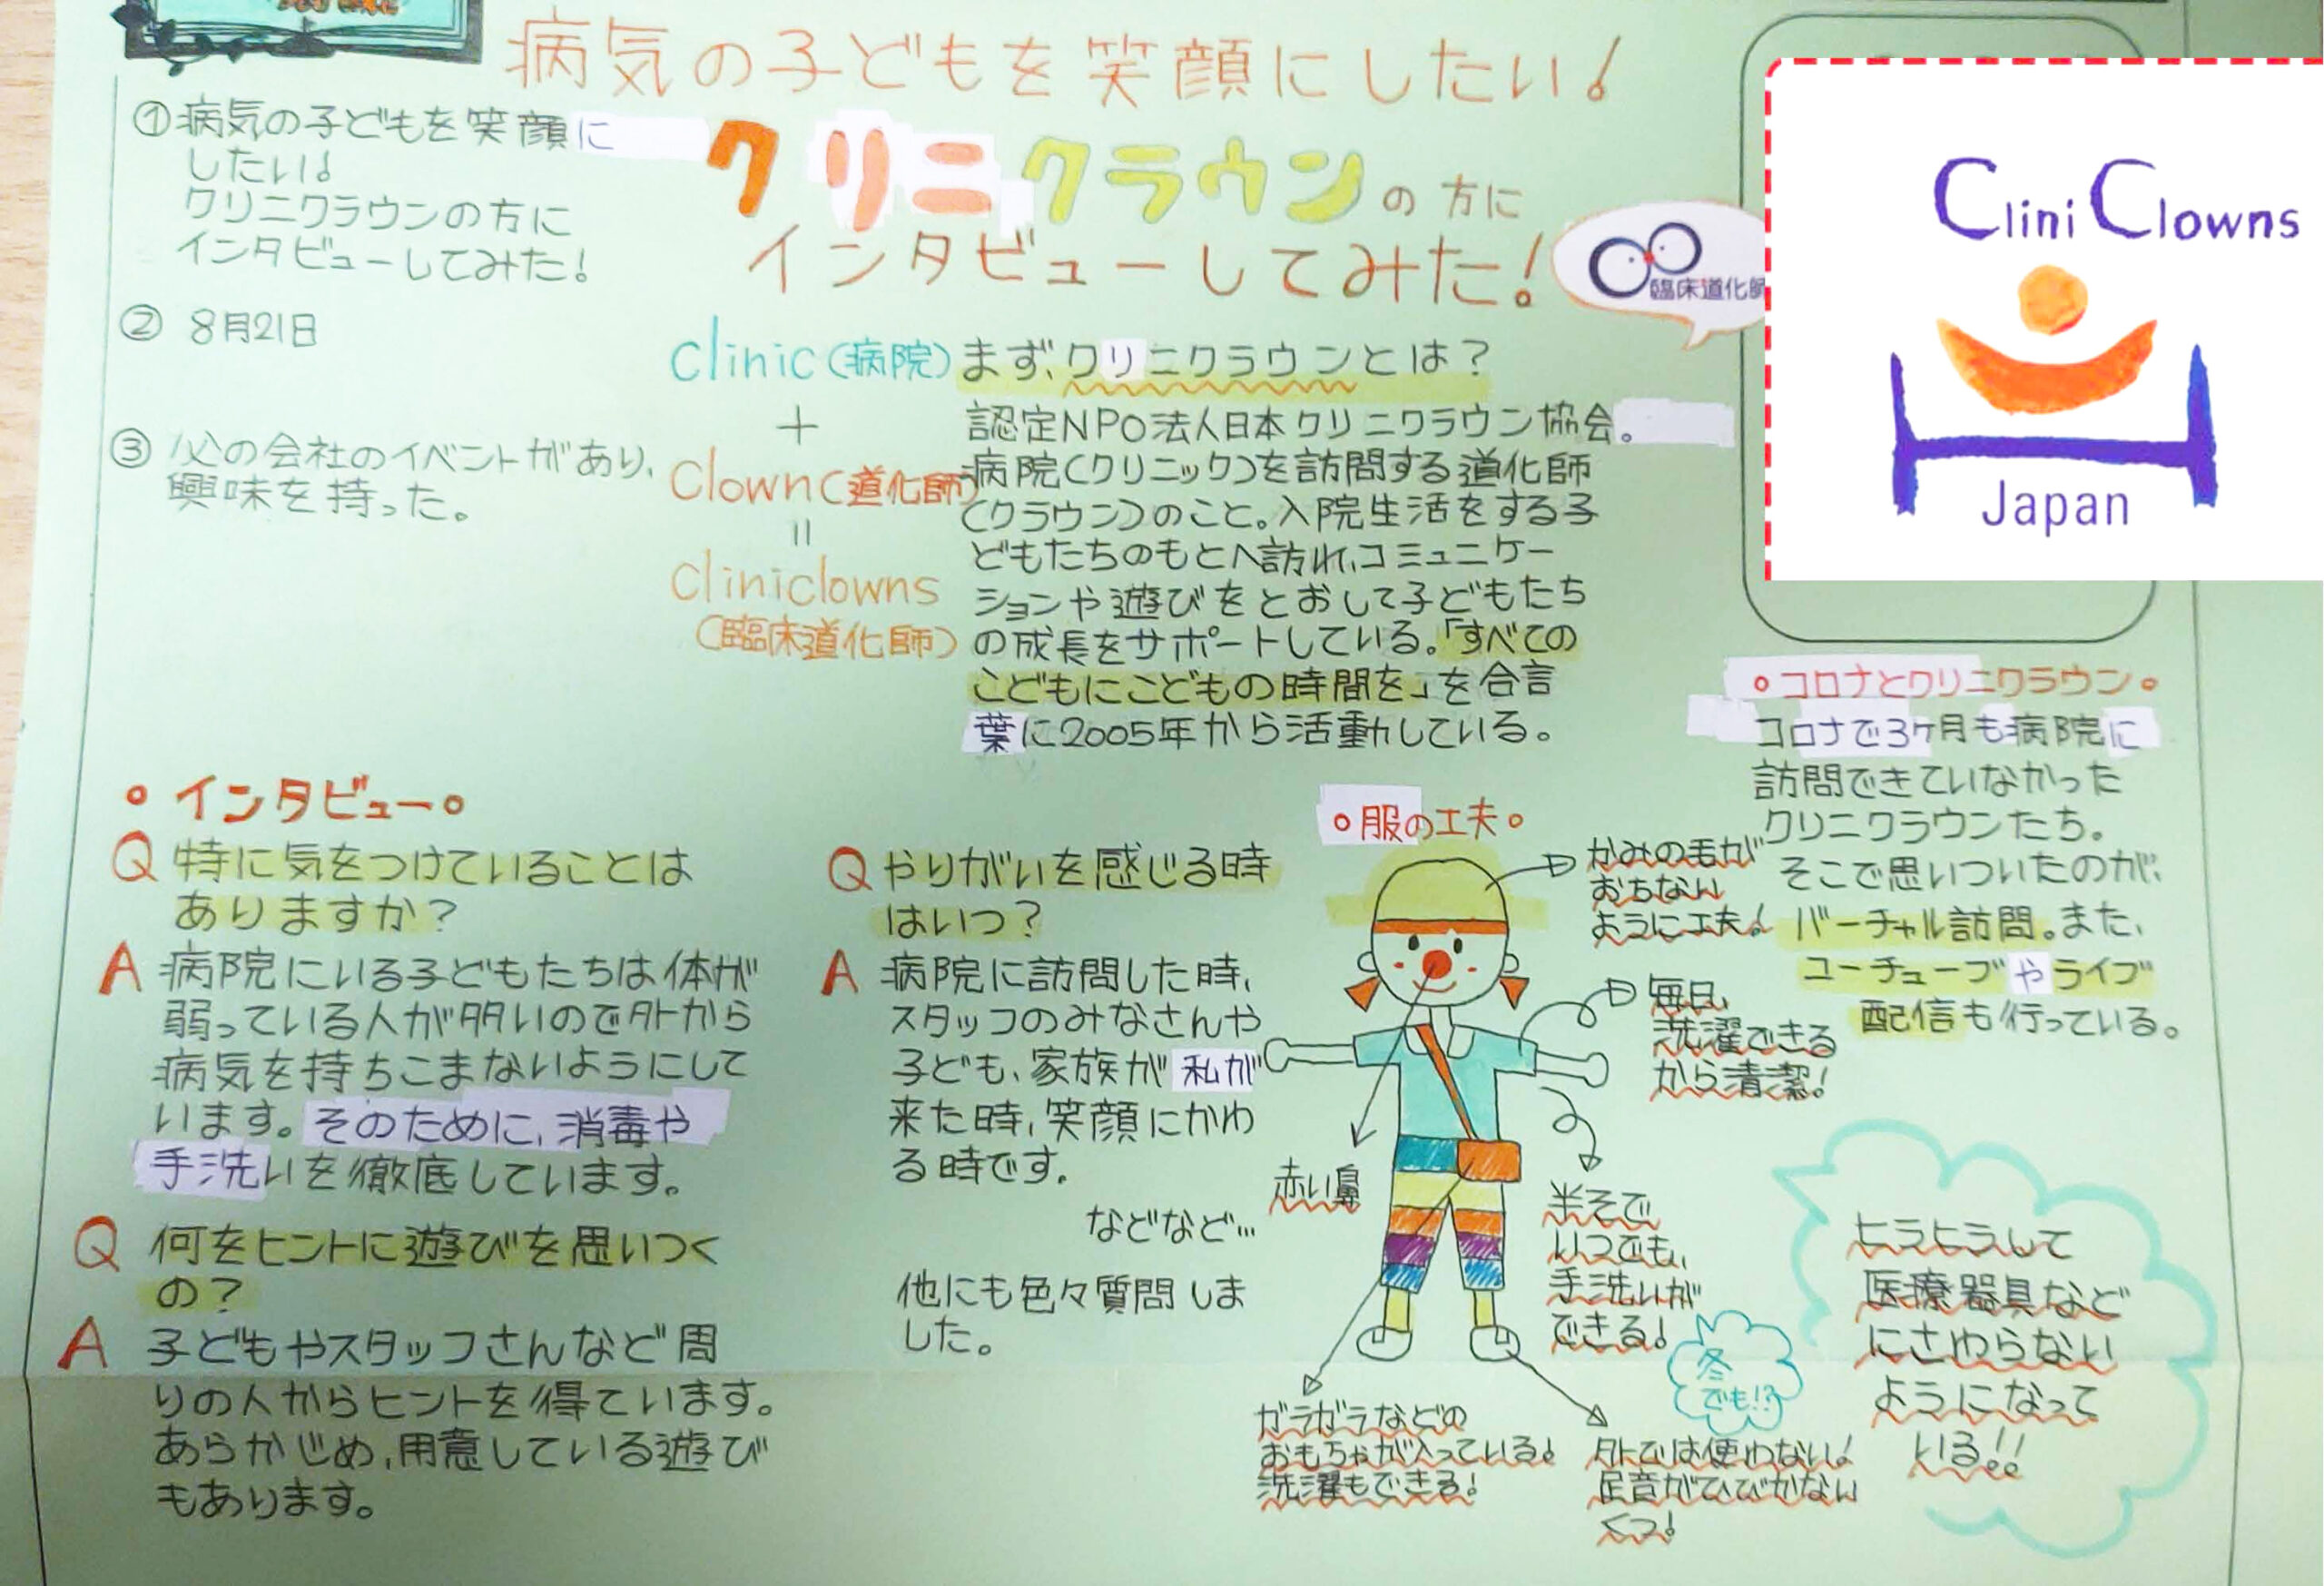 病気の子どもを笑顔にしたい!
クリニクラウンの方に
インタビューしてみた!
臨床道化師
Clini Clowns
Japan
①病気の子どもを笑顔に
したい!
クリニクラウンの方に
インタビューしてみた!
② 8月21日
③ 父の会社のイベントがあり、
興味を持った。
clinic(病院)
+
clown(道化師)
=
cliniclowns
(臨床道化師)
まず、クリニクラウンとは?
認定NPO法人日本クリニクラウン協会。
病院(クリニック)を訪問する道化師
(クラウン)のこと。入院生活をする子
どもたちのもとへ訪れ、コミュニケー
ションや遊びをとおして子どもたち
の成長をサポートしている。「すべての
こどもにこどもの時間を」を合言
葉に2005年から活動している。
。コロナとクリニクラウン。
コロナで3ヶ月も病院に
訪問できていなかった
クリニクラウンたち。
そこで思いついたのが、
バーチャル訪問。また、
ユーチューブやライブ
配信も行っている。
。インタビュー。
Q 特に気をつけていることは
ありますか?
A 病院にいる子どもたちは体が
弱っている人が多いので外から
病気を持ちこまないようにして
います。そのために、消毒や
手洗いを徹底しています。
Q 何をヒントに遊びを思いつく
の?
A 子どもやスタッフさんなど周
りの人からヒントを得ています。
あらかじめ、用意している遊び
もあります。
Q やりがいを感じる時
はいつ?
A 病院に訪問した時、
スタッフのみなさんや
子ども、家族が私が
来た時、笑顔にかわ
る時です。
などなど…
他にも色々質問しま
した。
。服の工夫。
かみの毛が
おちない
ように工夫!
毎日、
洗濯できる
から清潔!
赤い鼻
半そで
いつでも、
手洗いが
できる!
冬
でも!?
ガラガラなどの
おもちゃが入っている!
洗濯もできる!
外では使わない!
足音がひびかない
くつ!
ヒラヒラして
医療器具など
にさわらない
ようになって
いる!!